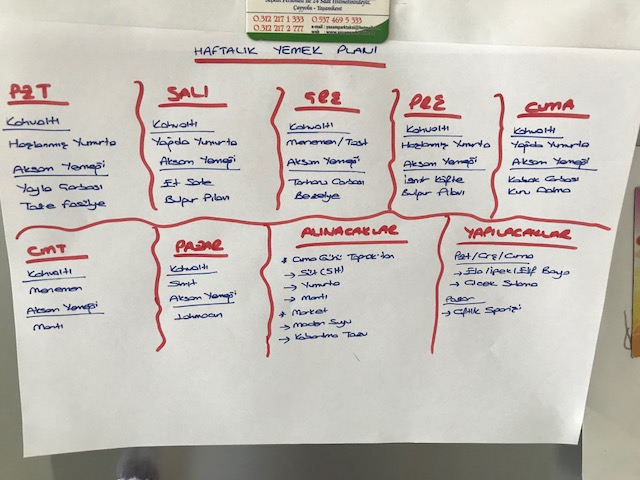 Çayyolu - Yaşamkent
0.312 217 1 333 0.537 469 5 333
0.312 217 2 777
HAFTALIK YEMEK PLANI
PZT
Kahvaltı
Haşlanmış Yumurta
Akşam Yemeği
Yayla Çorbası
Taze Fasülye
SALI
Kahvaltı
Yağda Yumurta
Akşam Yemeği
Et Sote
Bulgur Pilavı
ÇRŞ
Kahvaltı
Menemen/Tost
Akşam Yemeği
Tarhana Çorbası
Bezelye
PRŞ
Kahvaltı
Haşlanmış Yumurta
Akşam Yemeği
İzmir Köfte
Bulgur Pilavı
CUMA
Kahvaltı
Yağda Yumurta
Akşam Yemeği
Kabak Çorbası
Kuru Dolma
CMT
Kahvaltı
Menemen
Akşam Yemeği
Mantı
PAZAR
Kahvaltı
Simit
Akşam Yemeği
Lahmacun
ALINACAKLAR
* Cuma Günü Toprak'tan
→ Süt (5lt)
→ Yumurta
→ Mantı
* Market
→ Maden Suyu
→ Kabartma Tozu
YAPILACAKLAR
Pzt/Çrş/Cuma
→ Ela/İpek/Elif Banyo
→ Çiçek Sulama
Pazar
→ Çiftlik Siparişi